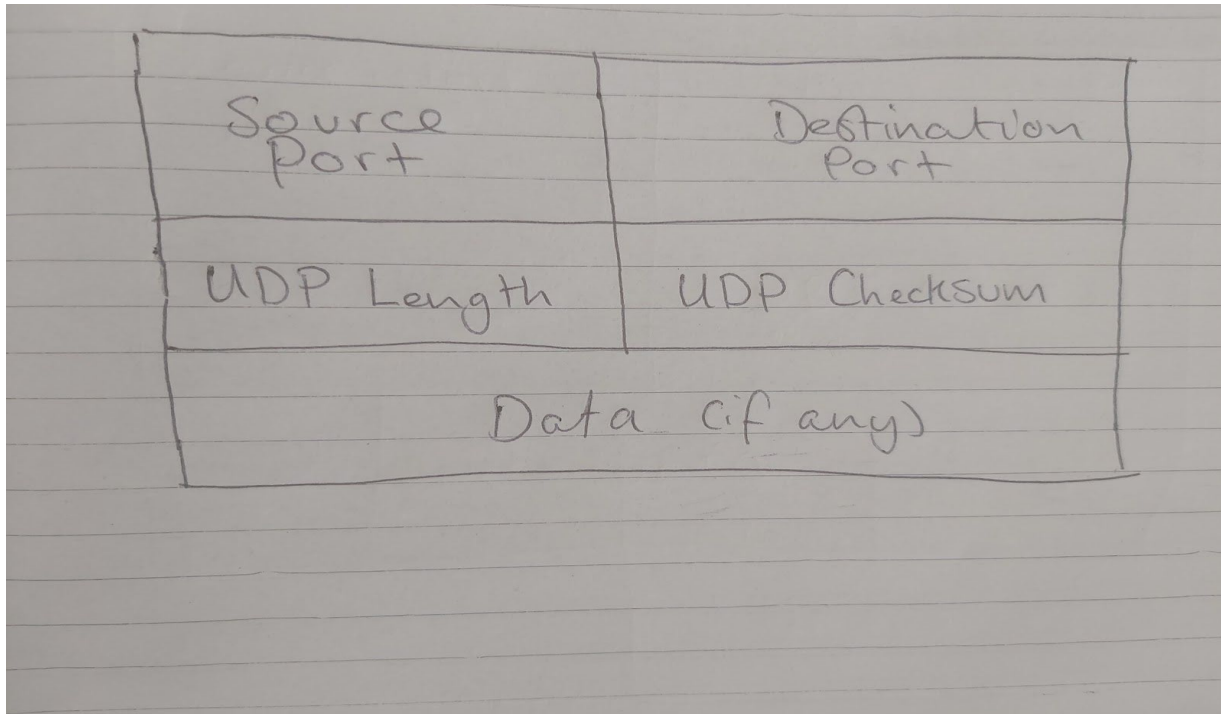 Source
Port
Destination
Port
UDP Length
UDP Checksum
Data (if any)